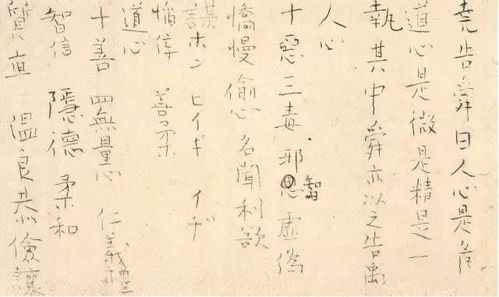 堯告舜曰人心是危
道心是微是精是一
執其中舜亦以之告禹
人心
十惡三毒邪智虚偽
憍慢偷心名聞利欲
謀ホン ヒイギ イヂ
善柔
道心
十善 四無量心 仁義禮
智信 隱德 柔和
質直 温良恭儉讓